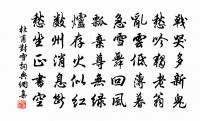 戰哭多新鬼
愁吟獨老翁
亂雲低薄暮
急雪舞回風
瓢棄樽無綠
爐存火似紅
數州消息斷
愁坐正書空
杜甫對雪詞典網書